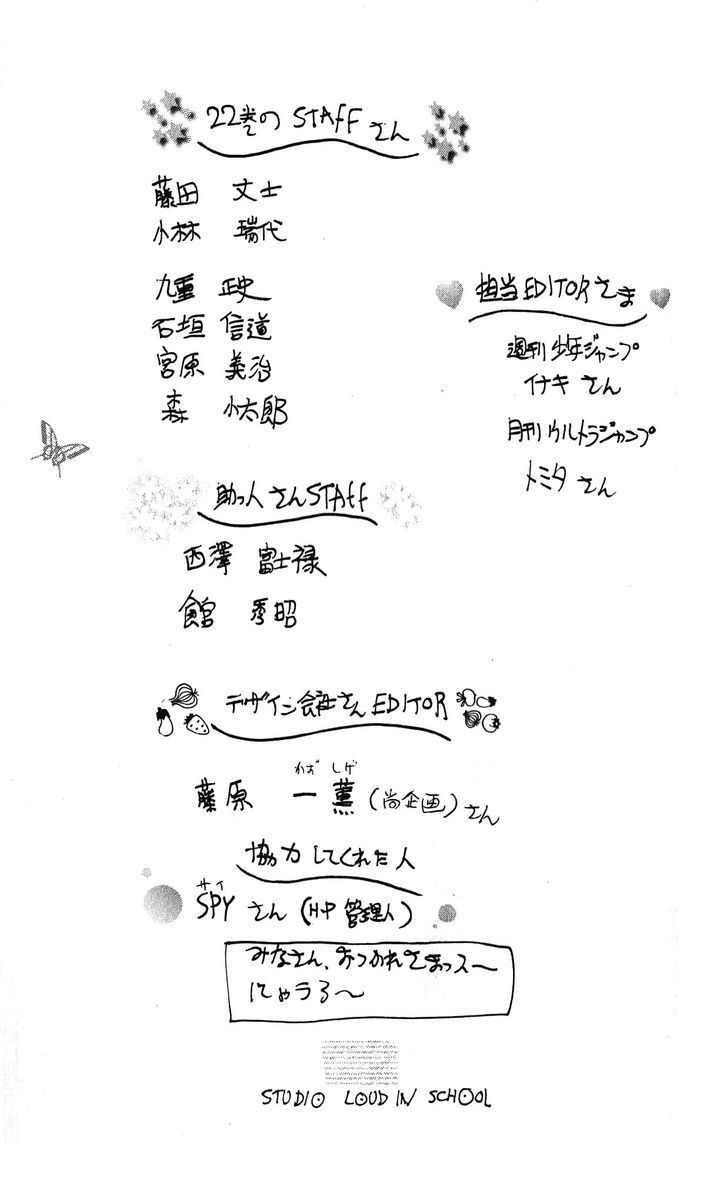 22巻の STAFF さん
藤田 文士
小林 瑞代
九重 政史
石垣 信道
宮原 義治
森 小太郎
担当EDITORさま
週刊少年ジャンプ
イナキ さん
月刊ウルトラジャンプ
トミタ さん
助っ人さんSTAFF
西澤 富士禄
舘 秀昭
デザイン会社さんEDITOR
かず しげ
藤原 一薫(尚企画)さん
協力してくれた人
サイ
SPY さん(HP管理人)
みなさん、おつかれさまっス〜
にゅうる〜
STUDIO LOUD IN SCHOOL